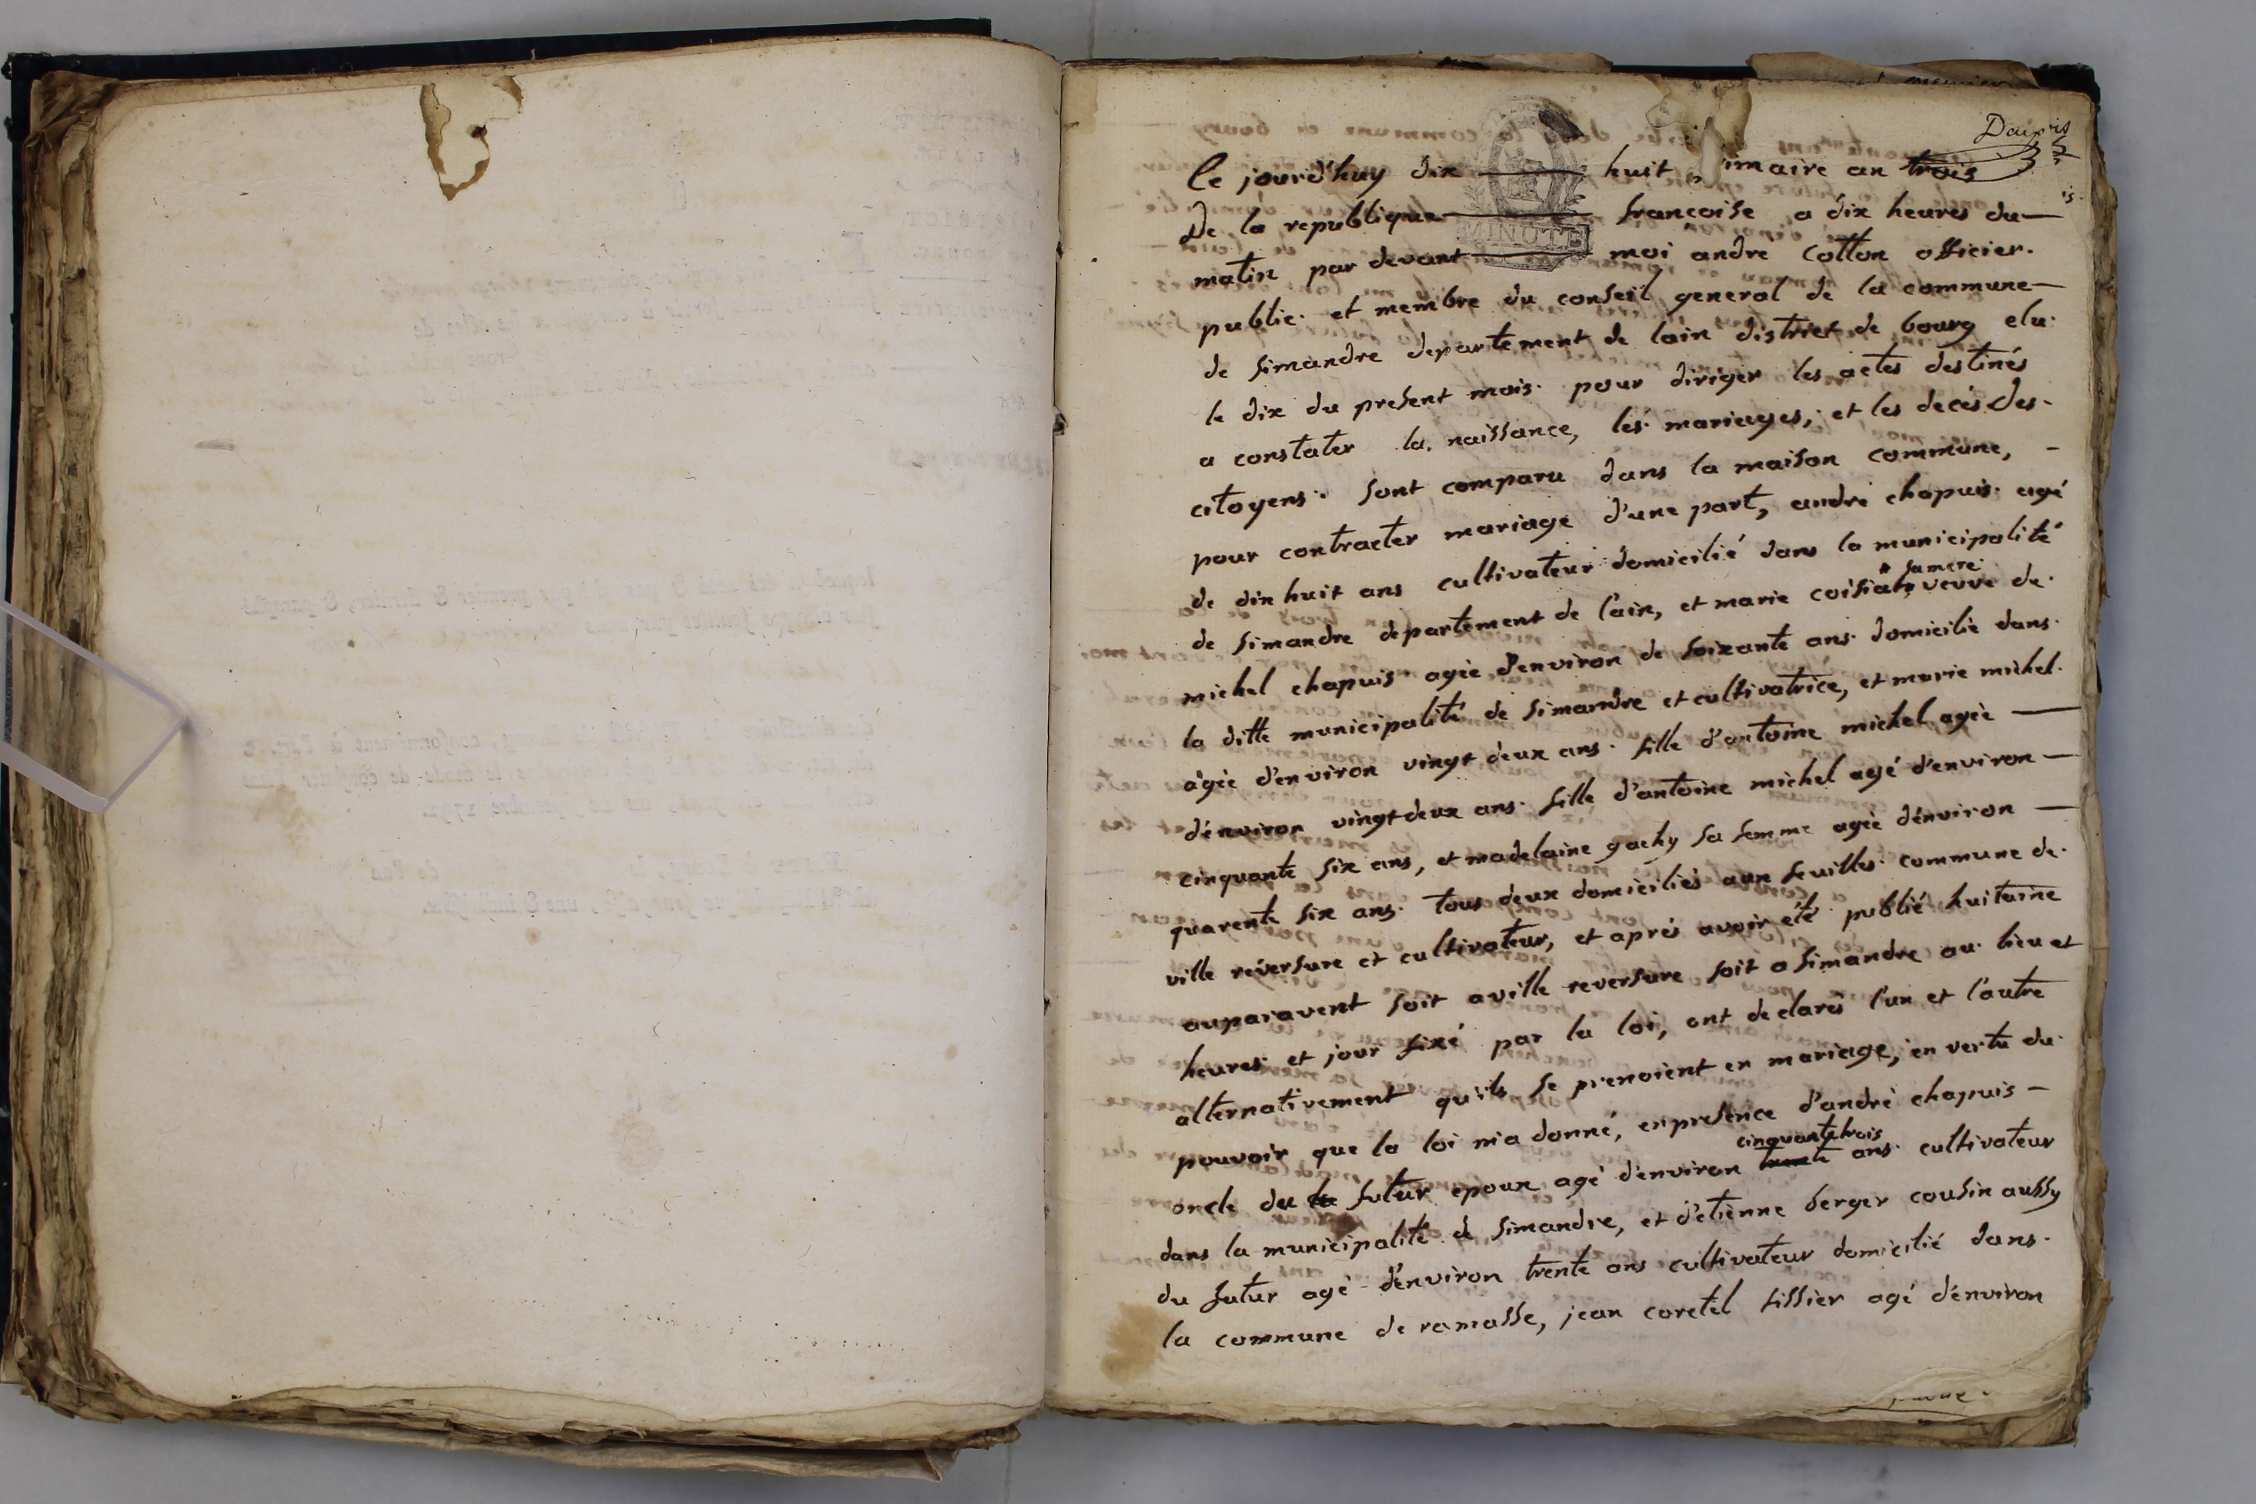 Dupuis
Ce jourd'huy dix huit imaire an trois
De la republique francoise a dix heures du
MINUTE
matin par devant moi andre Cotton officier.
public. et membre du conseil general de la commune
de simandre departement de lain district de bourg elu.
le dix du present mois. pour diriger les actes destinés
a constater la. naissance, les mariages, et les decès des.
citoyens. sont comparu dans la maison commune,
pour contracter mariage d'une part, andré chapuis. agé
de dix huit ans cultivateur domicilié dans la municipalité
sa mere
de simandre departement de l'ain, et marie coisiat, veuve de.
michel chapuis. agèe d'environ de soixante ans. domicilié dans.
la ditte municipalité de simandre et cultivatrice, et marie michel.
agèe d'environ vingt deux ans. fille d'antoine michel agèe
d'environ vingt deux ans. fille d'antoine michel agé d'environ
cinquante six ans, et madelaine gachy sa femme agèe d'environ
quarente six ans. tous deux domiciliés aux feuilles. commune de.
ville reversure et cultivateur, et aprés avoir été publié huitaine
auparavent soit a ville reversure soit a simandre au lieu et
heures. et jour fixé par la loi, ont declarés l'un et l'autre
alternativement qu'ils se prenoient en mariage, en vertu du.
pouvoir que la loi m'a donné, en presence d'andré chapuis
cinquante trois
oncle du la futur epoux agé d'environ trente ans. cultivateur
dans la municipalité de simandre, et d'etienne berger cousin aussy
du futur agé d'environ trente ans cultivateur domicilié dans.
la commune de ramasse, jean coretel tissier agé d'environ